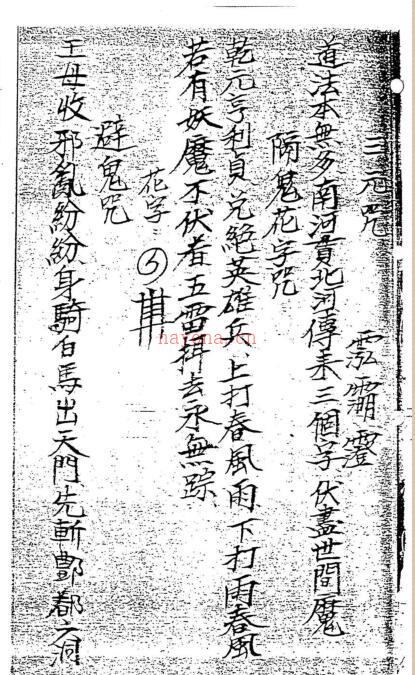 三元咒
道法本無多南河貫北河傳來三個字伏盡世間魔
隔鬼花字咒
乾元亨利貞兌絕英雄兵上打春風雨下打雨春風
若有妖魔不伏者五雷打去永無踪
花字
避鬼咒
王母收邪亂紛紛身騎白馬出天門先斬酆都六洞
hayona.cn